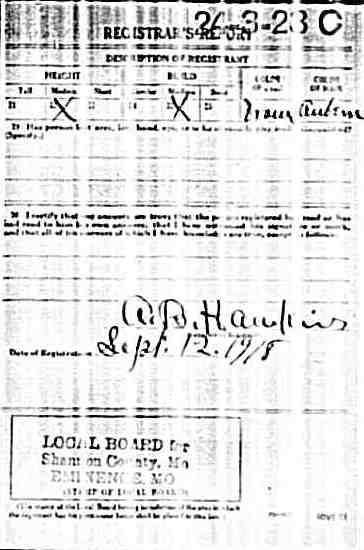 24-3-23 C
REGISTRAR'S REPORT
DESCRIPTION OF REGISTRANT
HEIGHT BUILD COLOR COLOR
Tall Medium Short Slender Medium Stout OF EYES OF HAIR
21 X 22 24 X Brown Auburn
29 Has person lost arm, leg, hand, eye,
(Specify.)
30 I certify that my answers are true; that the person registered has read or has
had read to him his own answers; that I have witnessed his signature or mark,
and that all of his answers of which I have knowledge are true, except as follows:
A. B. Hawkins
Date of Registration Sept. 12. 1918
LOCAL BOARD for
Shannon County, Mo
EMINENCE, MO
(STAMP OF LOCAL BOARD)
(The stamp of the Local Board having jurisdiction of the area in which
the registrant has his permanent home shall be placed in this box.)
(OVER)